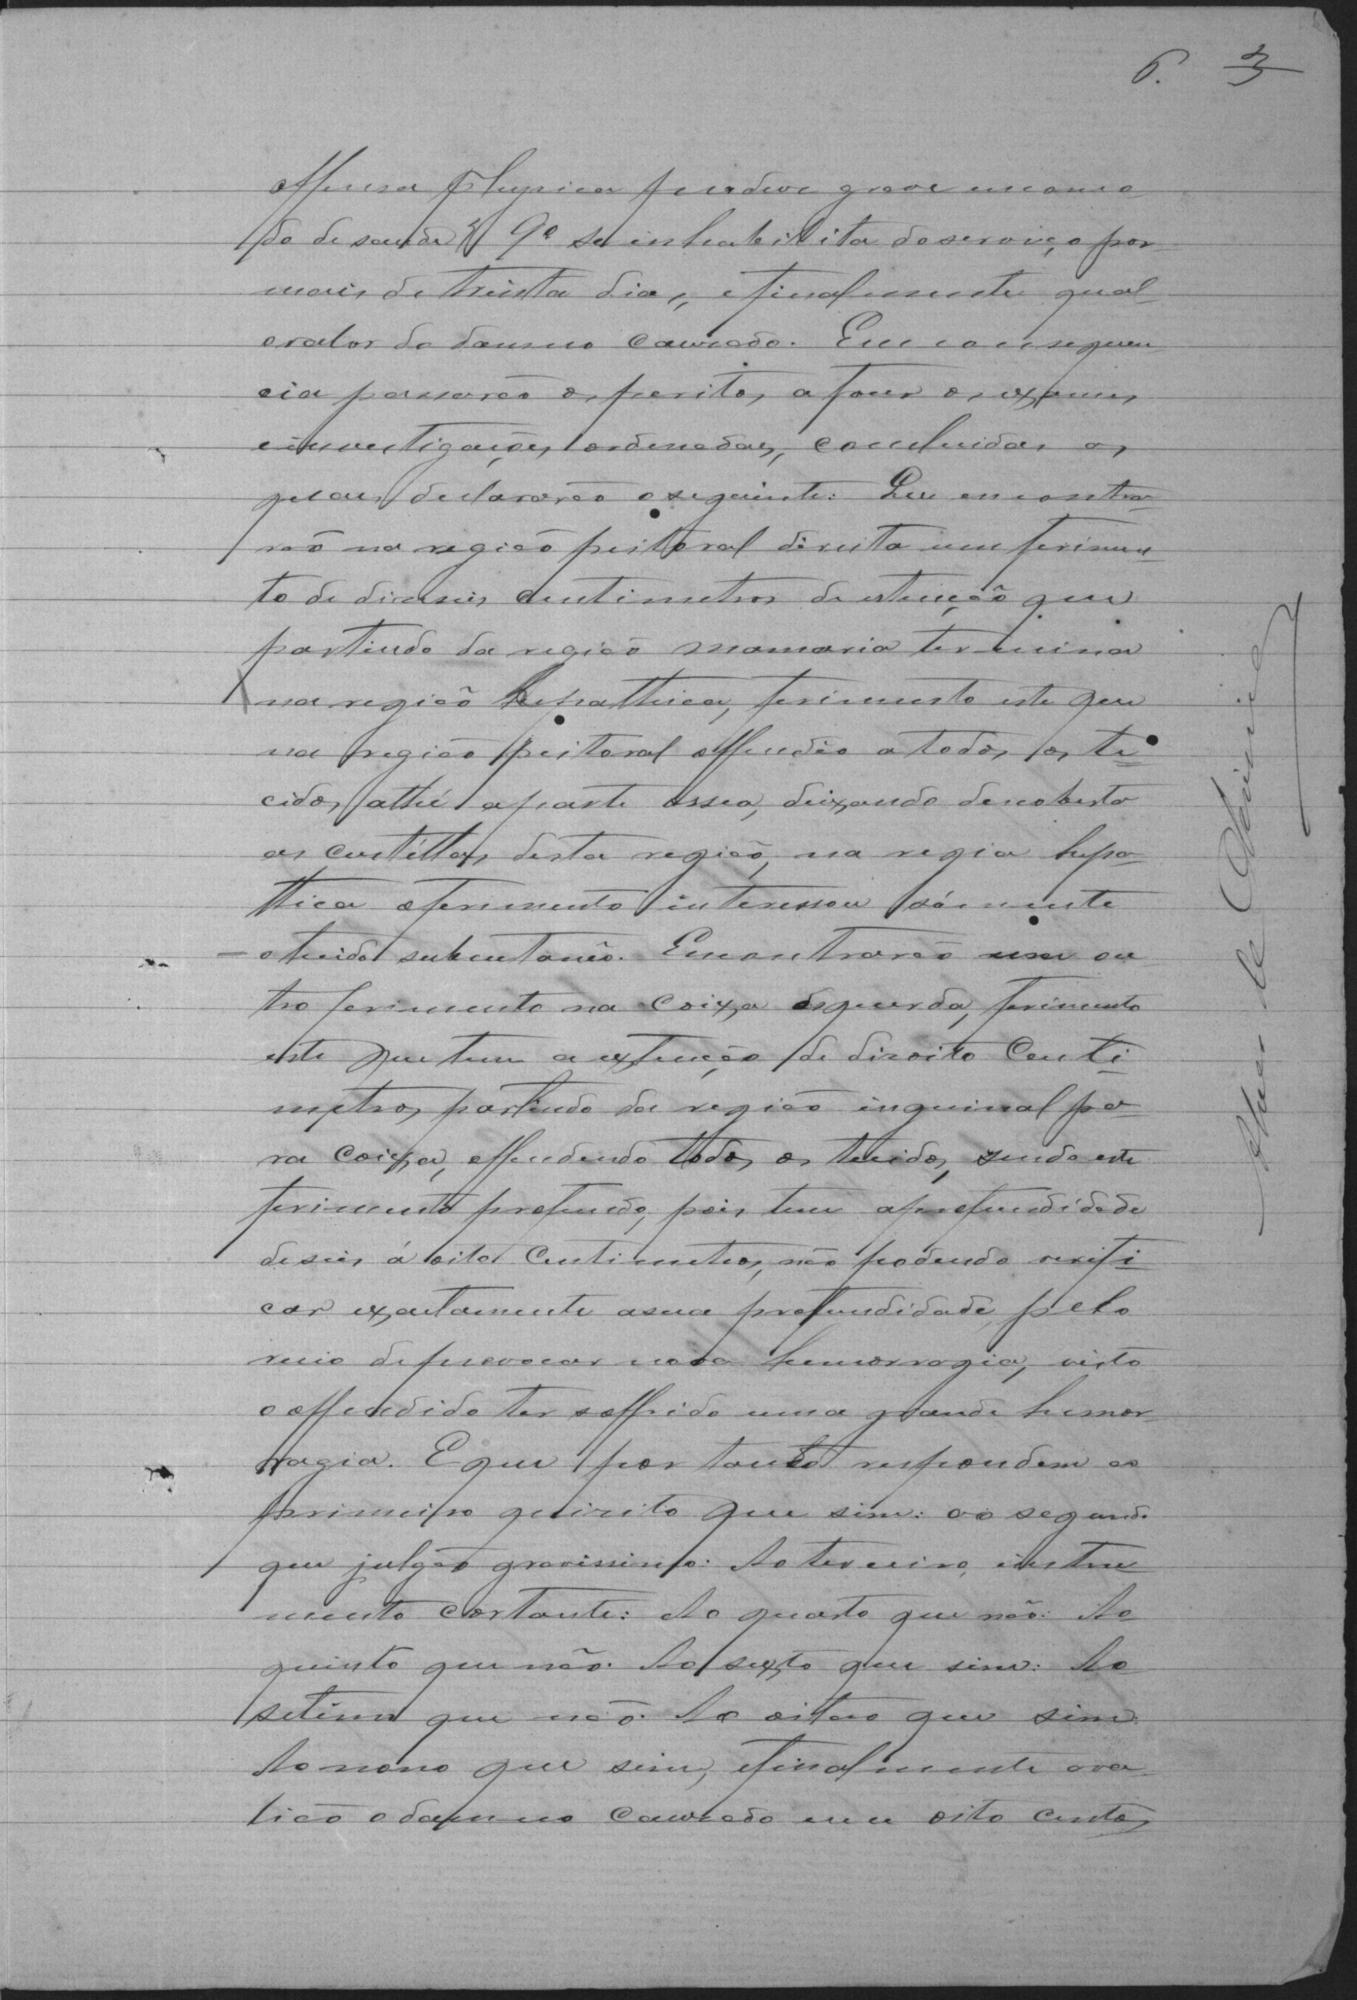 6. 3
offensa physica produz grave incomo
do de saude? 9º se inhabilita do serviço por
mais de trinta dias, e finalmente qual
o valor do damno causado. Em consequen
cia passarão os peritos a fazer os exames
e investigações ordenadas, concluidas as
quaes declararão o seguinte: Que encontra-
rão na região peitoral direita um ferimen-
to de diseseis centimetros de extenção que
partindo da região mamaria termina
na região hepathica, ferimento este que
na região peitoral offendeo a todos os te-
cidos athé a parte ossea, deixando descoberto
as costéllas desta região, na regia hepa-
thica o ferimento interessou sómente
o tecido subcutanêo. Encontrarão um ou
tro ferimento na coixa esquerda, ferimento
este que tem a extenção de disoito Centi-
metros, partindo da região inguinal pa-
ra coixa, offendendo todos os tecidos, sendo este
ferimento profundo, pois tem a profundidade
de seis á oito Centimetros, não podendo verifi-
car exactamente a sua profundidade, pelo
receio de provocar nova hemorragia, visto
o offendido ter soffrido uma grande hemor-
ragia. E que por tanto respondem ao
primeiro quisito que sim: ao segundo
que julgão gravissimo: Ao terceiro, instru
mento cortante: Ao quarto que não: Ao
quinto que não: Ao sexto que sim: Ao
setimo que não: Ao oitavo que sim:
Ao nono que sim, e finalmente ava
lião o damno causado em oito centos
de Oliveira